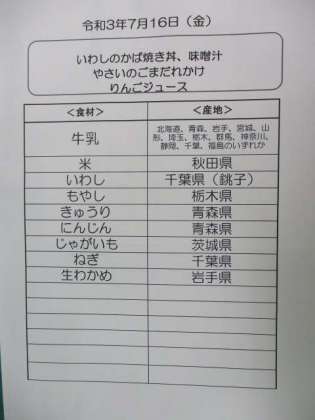 令和3年7月16日（金）
いわしのかば焼き丼、味噌汁
やさいのごまだれかけ
りんごジュース
＜食材＞ ＜産地＞
牛乳 北海道、青森、岩手、宮城、山
形、埼玉、栃木、群馬、神奈川、
静岡、千葉、福島のいずれか
米 秋田県
いわし 千葉県（銚子）
もやし 栃木県
きゅうり 青森県
にんじん 青森県
じゃがいも 茨城県
ねぎ 千葉県
生わかめ 岩手県